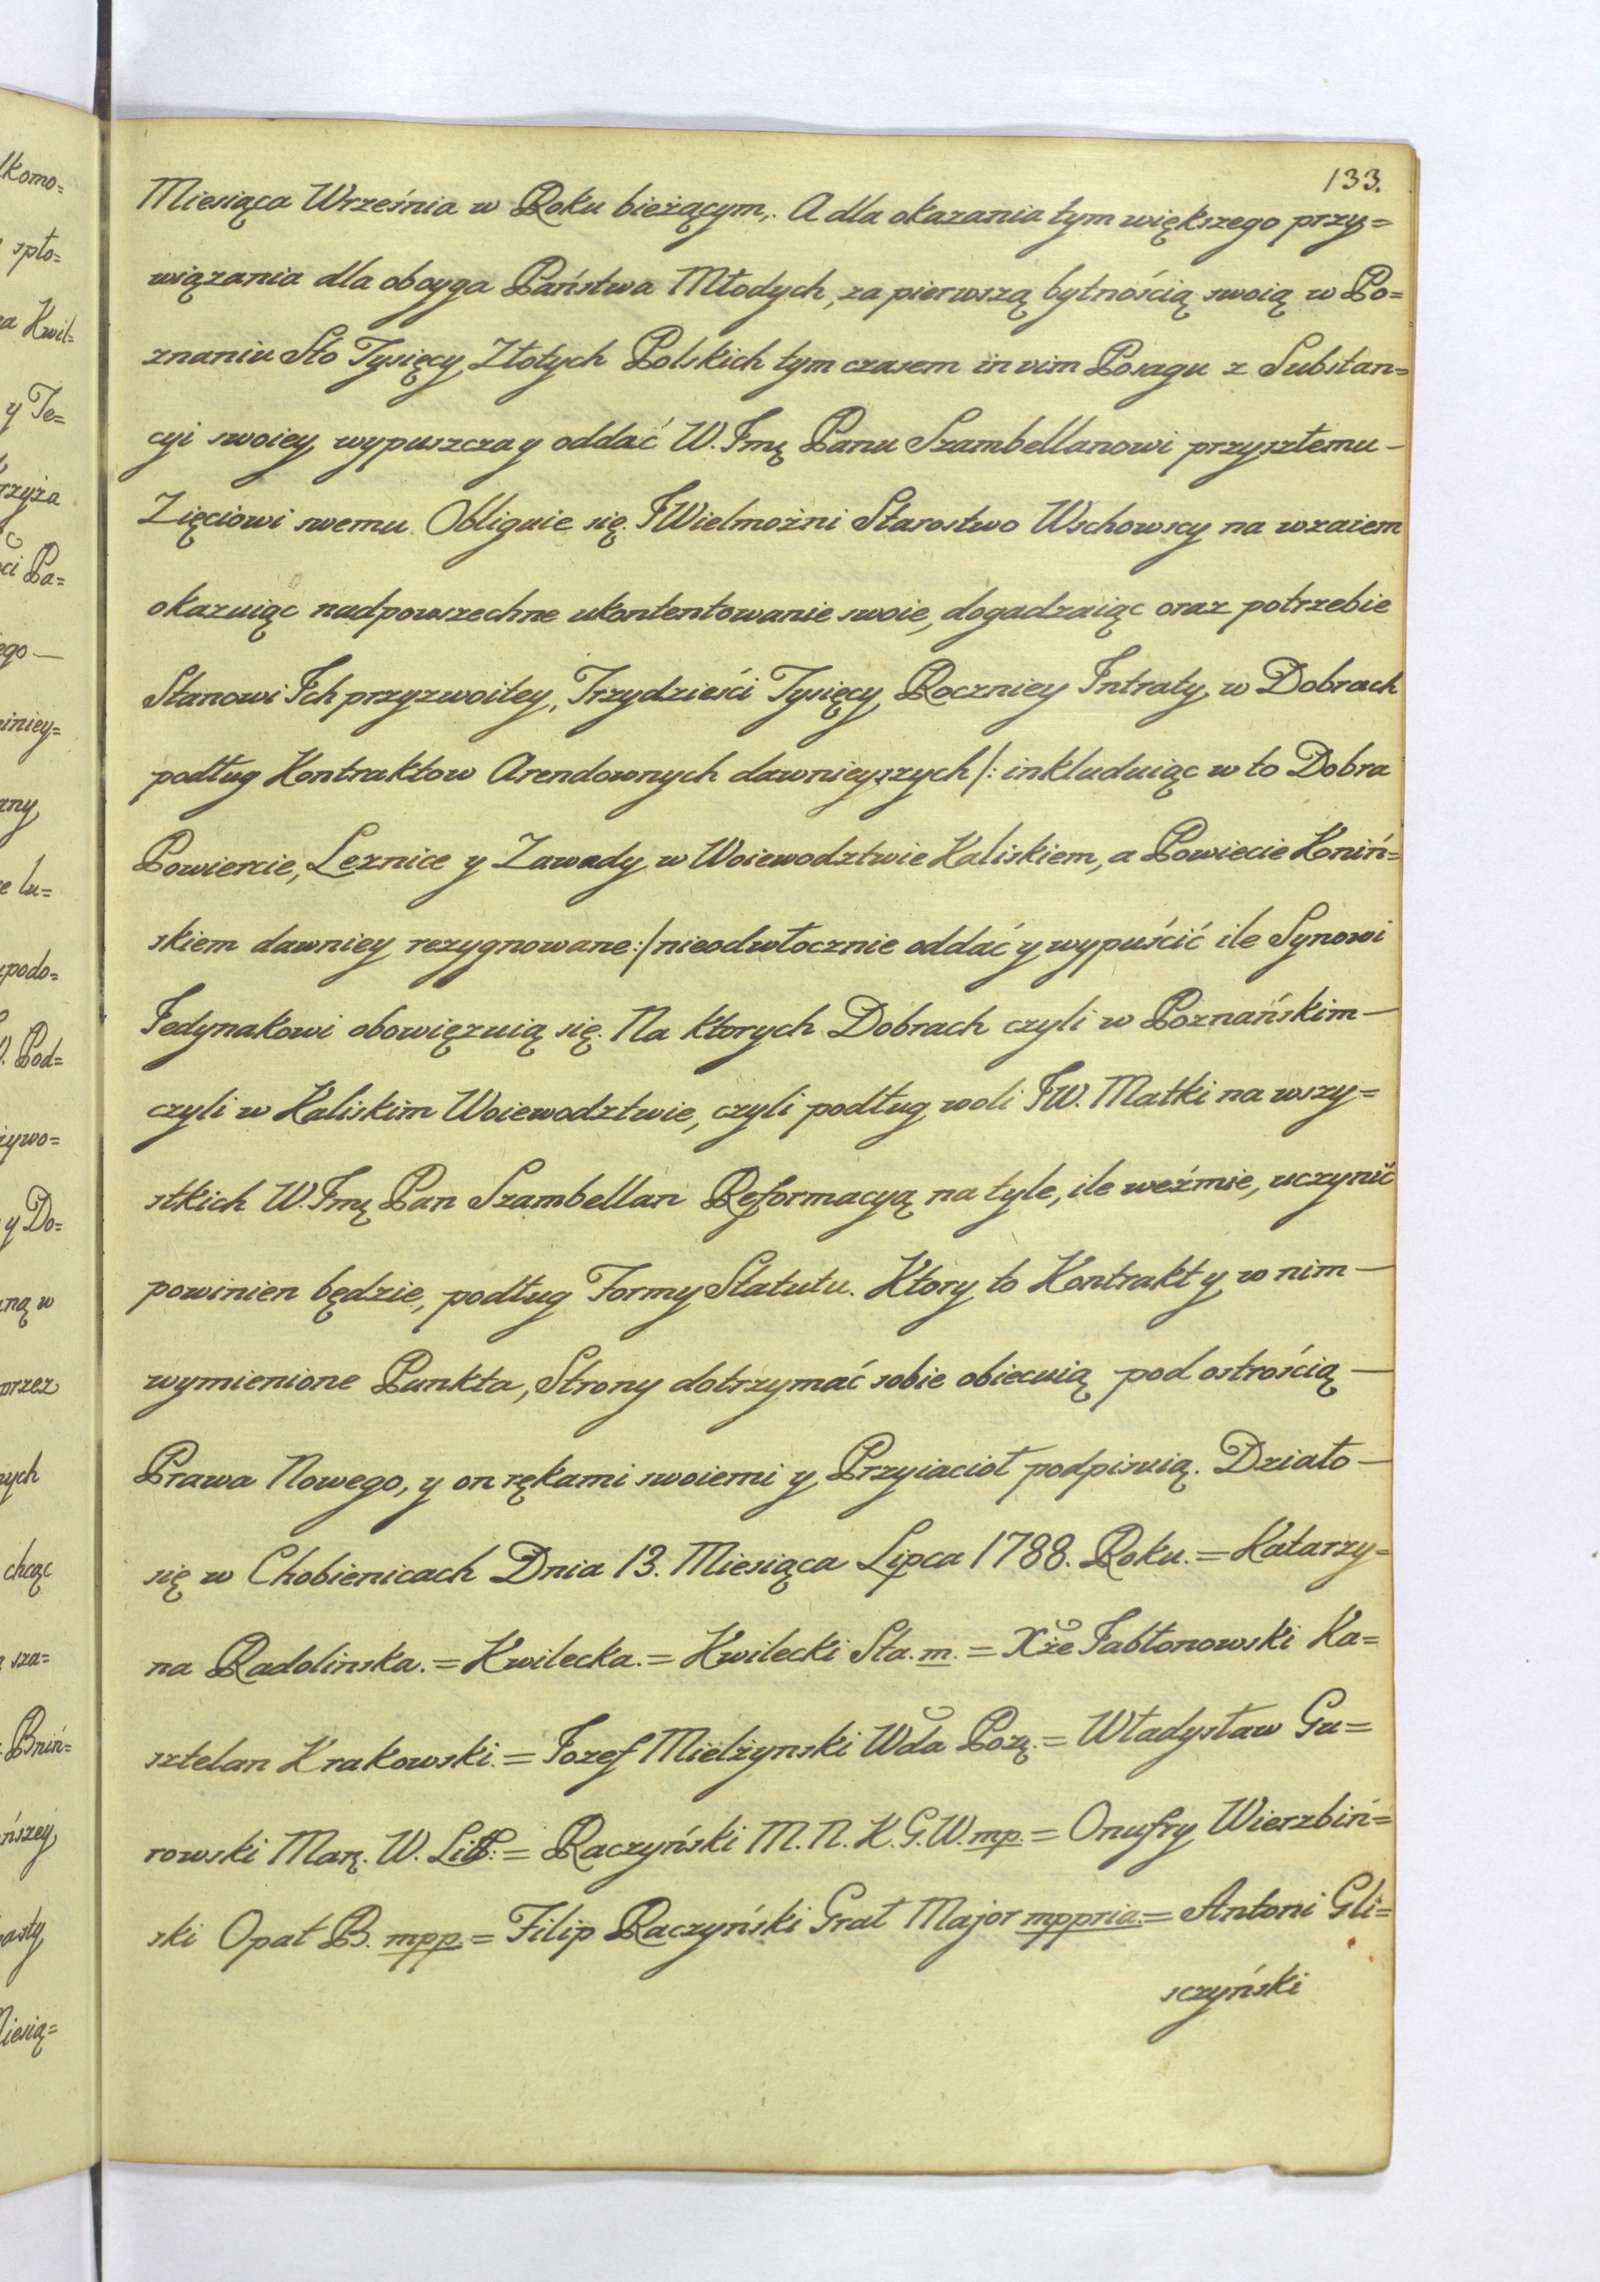 133.
Miesiąca Września w Roku bieżącym,. A dla okazania tym większego przy=
wiązania dla oboyga Państwa Młodych, za pierwszą bytnością swoią w Po=
znaniu Sto Tysięcy Złotych Polskich tym czasem in vim Posagu z Substan=
cyi swoiey wypuszcza y oddać W. Jmę Panu Szambellanowi przyszłemu —
Zięciowi swemu Obliguie się. JWielmożni Starostwo Wschowscy na wzaiem
okazuiąc nadpowszechne ukontentowanie swoie, dogadzaiąc oraz potrzebie
Stanowi Ich przyzwoitey, Trzydzieści Tysięcy Roczniey Intraty, w Dobrach
podług Kontraktow Arendownych dawnieyszych /: inkluduiąc w to Dobra
Powiercie, Leznice y Zawady w Woiewodztwie Kaliskiem, a Powiecie Koniń=
skiem dawniey rezygnowane :/ nieodwłocznie oddać y wypuścić ile Synowi
Jedynakowi obowięzuią się. Na ktorych Dobrach czyli w Poznańskim —
czyli w Kaliskim Woiewodztwie, czyli podług woli JW. Matki na wszy=
stkich W. Jmę Pan Szambellan Reformacyą na tyle, ile weźmie, uczynić
powinien będzie, podług Formy Statutu. Ktory to Kontrakt y w nim —
wymienione Punkta, Strony dotrzymać sobie obiecuią pod ostrością —
Prawa Nowego, y on rękami swoiemi y Przyiacioł podpisuią. Działo —
się w Chobienicach Dnia 13. Miesiąca Lipca 1788. Roku. = Katarzy=
na Radolinska. = Kwilecka. = Kwilecki Sta. m. = Xże Jabłonowski Ka=
sztelan Krakowski. = Jozef Mielżynski Wda Pozę. = Władysław Gu=
rowski Marę. W. Litt: = Raczyński M. N. K. G. W. mp. = Onufry Wierzbiń=
ski Opat B. mpp. = Filip Raczyński Grał Major mppria. = Antoni Gli=
sczyński